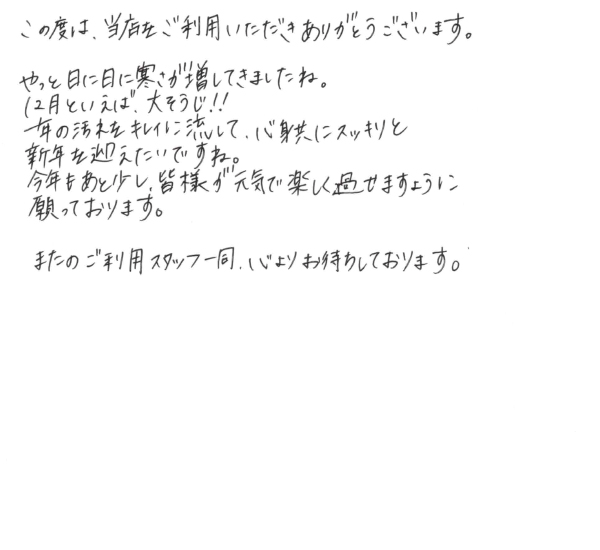 この度は、当店をご利用いただきありがとうございます。
やっと日に日に寒さが増してきましたね。
12月といえば、大そうじ!!
一年の汚れをキレイに流して、心身共にスッキリと
新年を迎えたいですね。
今年もあと少し、皆様が元気で楽しく過せますように
願っております。
またのご利用スタッフ一同、心よりお待ちしております。